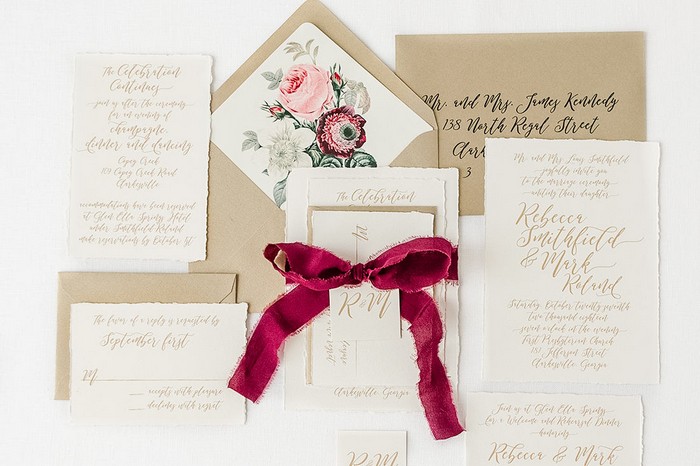 The Celebration
Continues
join us after the ceremony
for an evening of
champagne,
dinner and dancing
Cagey Creek
119 Cagey Creek Road
Clarkesville
accommodations have been reserved
at Glen Ella Springs Hotel
under Smithfield Roland
make reservations by October 1st
Mr. and Mrs. James Kennedy
138 North Regal Street
Clark
3
The favor of a reply is requested by
September first
M
accepts with pleasure
declines with regret
The Celebration
R & M
Clarkesville, Georgia
Mr. and Mrs. Lang Smithfield
joyfully invite you
to the marriage ceremony
uniting their daughter
Rebecca
Smithfield
& Mark
Roland
Saturday, October twenty seventh
two thousand eighteen
seven o'clock in the evening
First Presbyterian Church
185 Jefferson Street
Clarkesville, Georgia
R & M
Join us at Glen Ella Springs
for a Welcome and Rehearsal Dinner
honoring
Rebecca & Mark